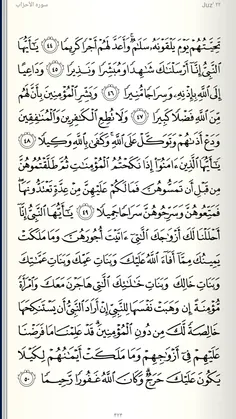 سورة الأحزاب Juz' ٢٢
تَحِيَّتُهُمْ يَوْمَ يَلْقَوْنَهُۥ سَلَٰمٌ ۚ وَأَعَدَّ لَهُمْ أَجْرًا كَرِيمًا ٤٤ يَٰٓأَيُّهَا
ٱلنَّبِىُّ إِنَّآ أَرْسَلْنَٰكَ شَٰهِدًا وَمُبَشِّرًا وَنَذِيرًا ٤٥ وَدَاعِيًا
إِلَى ٱللَّهِ بِإِذْنِهِۦ وَسِرَاجًا مُّنِيرًا ٤٦ وَبَشِّرِ ٱلْمُؤْمِنِينَ بِأَنَّ لَهُم
مِّنَ ٱللَّهِ فَضْلًا كَبِيرًا ٤٧ وَلَا تُطِعِ ٱلْكَٰفِرِينَ وَٱلْمُنَٰفِقِينَ
وَدَعْ أَذَىٰهُمْ وَتَوَكَّلْ عَلَى ٱللَّهِ ۚ وَكَفَىٰ بِٱللَّهِ وَكِيلًا ٤٨
يَٰٓأَيُّهَا ٱلَّذِينَ ءَامَنُوٓا۟ إِذَا نَكَحْتُمُ ٱلْمُؤْمِنَٰتِ ثُمَّ طَلَّقْتُمُوهُنَّ
مِن قَبْلِ أَن تَمَسُّوهُنَّ فَمَا لَكُمْ عَلَيْهِنَّ مِنْ عِدَّةٍ تَعْتَدُّونَهَا ۖ
فَمَتِّعُوهُنَّ وَسَرِّحُوهُنَّ سَرَاحًا جَمِيلًا ٤٩ يَٰٓأَيُّهَا ٱلنَّبِىُّ إِنَّآ
أَحْلَلْنَا لَكَ أَزْوَٰجَكَ ٱلَّٰتِىٓ ءَاتَيْتَ أُجُورَهُنَّ وَمَا مَلَكَتْ
يَمِينُكَ مِمَّآ أَفَآءَ ٱللَّهُ عَلَيْكَ وَبَنَاتِ عَمِّكَ وَبَنَاتِ عَمَّٰتِكَ
وَبَنَاتِ خَالِكَ وَبَنَاتِ خَٰلَٰتِكَ ٱلَّٰتِى هَاجَرْنَ مَعَكَ وَٱمْرَأَةً
مُّؤْمِنَةً إِن وَهَبَتْ نَفْسَهَا لِلنَّبِىِّ إِنْ أَرَادَ ٱلنَّبِىُّ أَن يَسْتَنكِحَهَا
خَالِصَةً لَّكَ مِن دُونِ ٱلْمُؤْمِنِينَ ۗ قَدْ عَلِمْنَا مَا فَرَضْنَا
عَلَيْهِمْ فِىٓ أَزْوَٰجِهِمْ وَمَا مَلَكَتْ أَيْمَٰنُهُمْ لِكَيْلَا
يَكُونَ عَلَيْكَ حَرَجٌ ۗ وَكَانَ ٱللَّهُ غَفُورًا رَّحِيمًا ٥٠